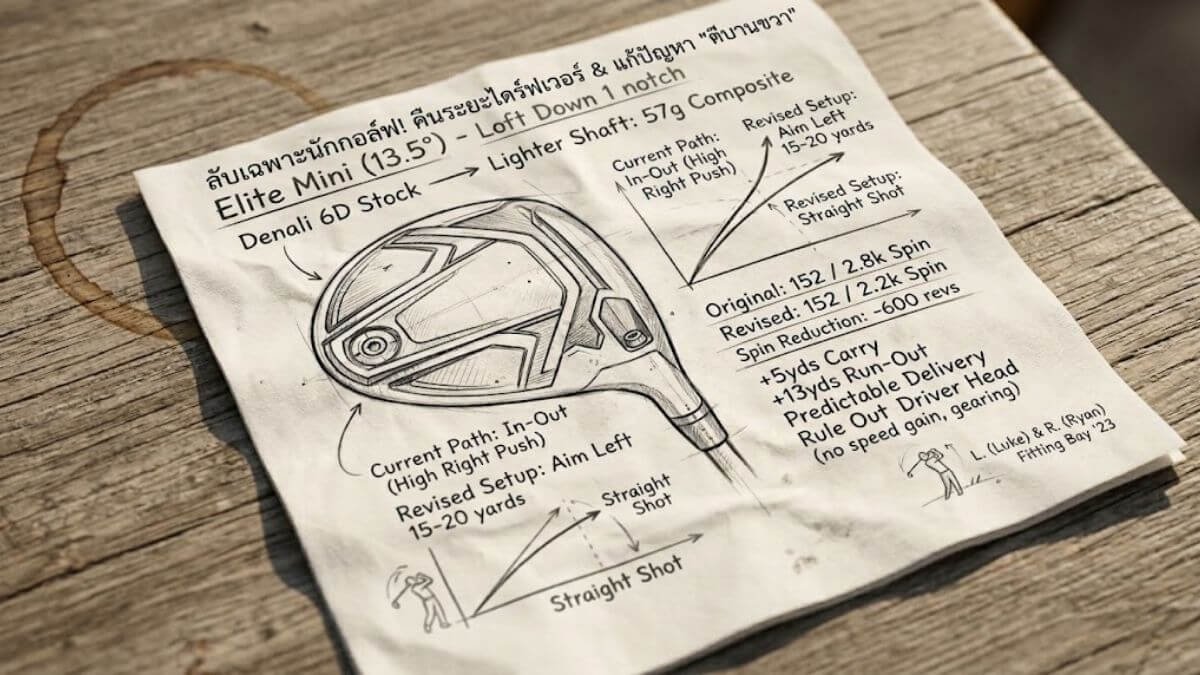 ลับเฉพาะนักกอล์ฟ! คืนระยะไดร์ฟเวอร์ & แก้ปัญหา "ตีบานขวา"
Elite Mini (13.5°) - Loft Down 1 notch
Denali 6D Stock → Lighter Shaft: 57g Composite
Current Path:
In-Out (High
Right Push)
Revised Setup:
Aim Left
15-20 yards
Revised Setup:
Straight Shot
Original: 152 / 2.8k Spin
Revised: 152 / 2.2k Spin
Spin Reduction: -600 revs
+5yds Carry
+13yds Run-Out
Predictable Delivery
Rule Out Driver Head
(no speed gain, gearing)
L. (Luke) & R. (Ryan)
Fitting Bay '23
Current Path: In-Out
(High Right Push)
Revised Setup: Aim Left
15-20 yards
Straight
Shot
Straight Shot